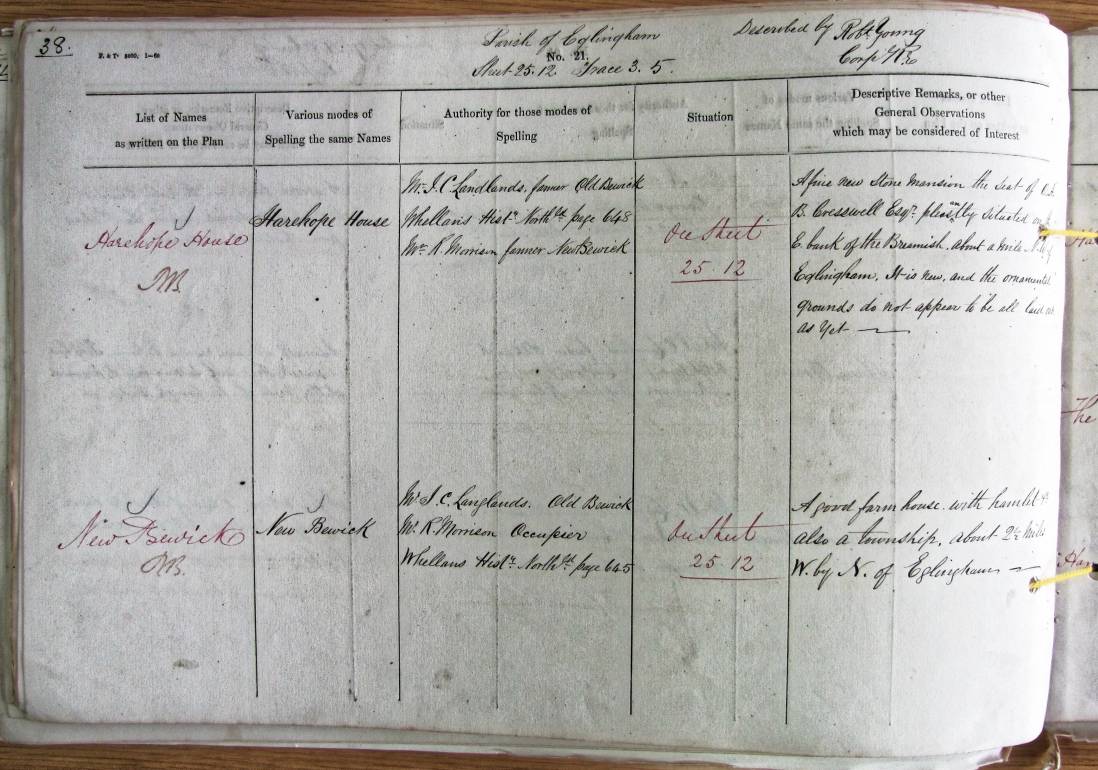 38.
Parish of Eglingham
Described by Robt. Young
Corpl RE
F. & Ts 5000. 1—60
No. 21.
Sheet 25.12 Trace 3. 5.
List of Names
as written on the Plan
Various modes of
Spelling the same Names
Authority for those modes of
Spelling
Situation
Descriptive Remarks, or other
General Observations
which may be considered of Interest
Harehope House
Harehope House
Mr. J. C. Landlands. farmer Old Bewick
Whellans Histy. Northld. page 648
Mr. R. Morrison farmer New Bewick
On Sheet
25 12
A fine new Stone Mansion the Seat of
B. Cresswell Esqr. pleasantly situated on
E. bank of the Breamish. about a mile N.W. of
Eglingham. It is new, and the ornamental
grounds do not appear to be all laid out
as Yet —
New Bewick
New Bewick
Mr. J. C. Langlands. Old Bewick
Mr. R. Morrison Occupier
Whellans Histy. Northld. page 645
On Sheet
25 12
A good farm house. with hamlet &
also a township. about 2½ Miles
W. by N. of Eglingham —
The